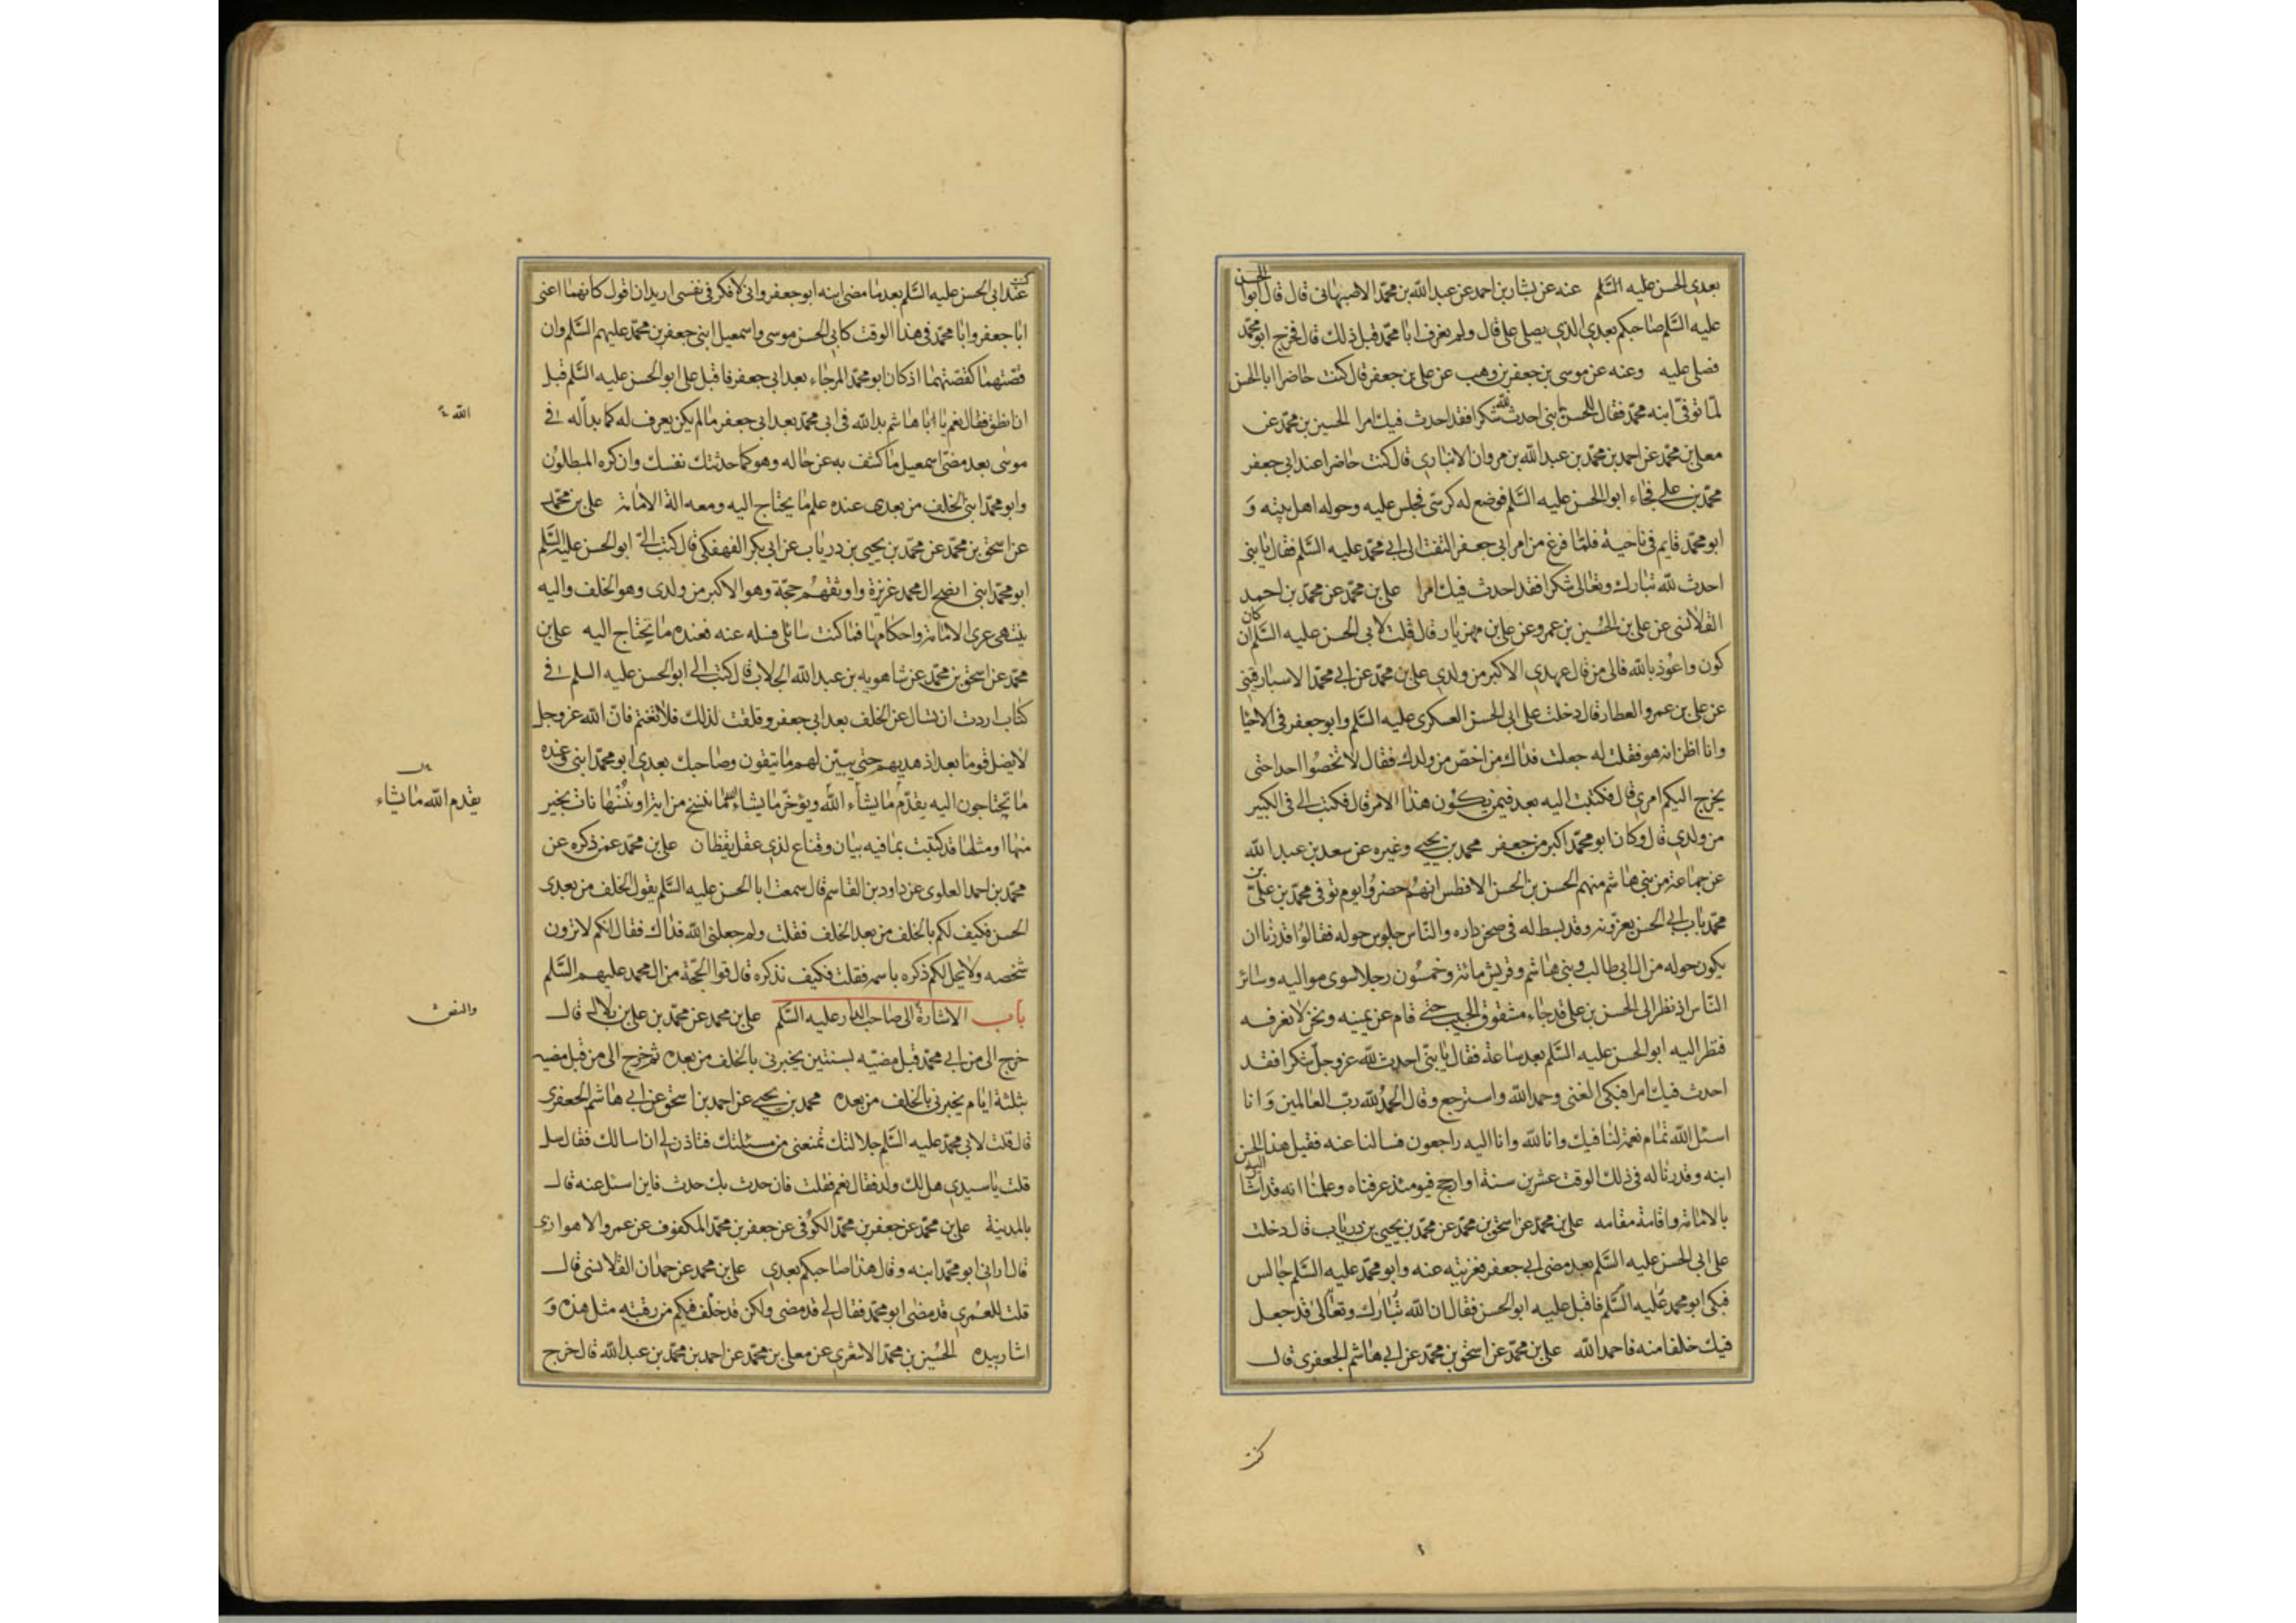 بعدي الحسن عليه السَّلم عنه عن بشار بن احمد عن عبد الله بن محمّد الاصبهانى قال قال ابوا الحسن
عليه السَّلم صاحبكم بعدي الذي يصلى على قال ولم نعرف ابا محمّد قبل ذلك قال فخرج ابو محمّد
فصلى عليه وعنه عن موسى بن جعفر بن وهب عن على بن جعفر قال كنت حاضرا ابا الحسن
لمّا توفّى ابنه محمّد فقال للحسن يا بنى احدث لله شكرا فقد احدث فيك امرا الحسين بن محمّد عن
معلى بن محمّد عن احمد بن محمّد بن عبد الله بن مروان الانبارى قال كنت حاضرا عند ابى جعفر
محمّد بن علي فجاء ابو الحسن عليه السَّلم فوضع له كرسّى فجلس عليه وحوله اهل بيته وَ
ابو محمّد قايم فى ناحية فلمّا فرغ من امر ابى جعفر التفت الى ابى محمّد عليه السَّلم فقال يا بنى
احدث لله تبارك وتعالى شكرا فقد احدث فيك امرا على بن محمّد عن محمّد بن احمد
القلانسى عن على بن الحُسين بن عمرو عن على بن مهزيار قال قلت لابى الحسن عليه السَّلم ان كان
كون واعُوذ بالله فالى من قال عهدي الاكبر من ولدي على بن محمّد عن ابي محمّد الاسبارقينى
عن على بن عمرو العطار قال دخلت على ابى الحسن العسكرى عليه السَّلم وابو جعفر فى الاحيا
وانا اظن انه هو فقلت له جعلت فداك من اخصّ من ولدك فقال لا تخصُوا احدا حتى
يخرج اليكم امرى قال فكتبت اليه بعد فيمن يكون هذا الامر قال فكتب الى فى الكبير
من ولدي قال وكان ابو محمّد اكبر من جعفر محمد بن يحيي وغيره عن سعد بن عبد الله
عن جماعة من بني هاشم منهم الحسن بن الحسن الافطس انهم حضروُا يوم توفى محمّد بن علىّ بن
محمّد باب ابي الحسن يعزّونه وقد بسط له فى صحن داره والنّاس جلوس حوله فقالوُا قدرنا ان
يكون حوله من ال ابى طالب وبنى هاشم وقريش مائة وخمسُون رجلا سوى مواليه وسائر
النّاس اذ نظر الى الحسن بن على قد جاء مشقوق الجيب حتى قام عن يمينه ونحن لا نعرفه
فنظر اليه ابو الحسن عليه السَّلم بعد ساعة فقال يا بنّى احدث للّه عزوجلّ شكرا فقد
احدث فيك امرا فبكى الفتى وحمد الله واسترجع وقال الحمدُ لله ربّ العالمين وَانا
اسئل الله تمام نعمه لنا فيك وانا لله وانا اليه راجعون فسالنا عنه فقيل هذا الحسن
ابنه وقدرنا له فى ذلك الوقت عشرين سنة او ارجح فيومئذ عرفناه وعلمنا انه قد اشا اليه
بالامامة واقامة مقامه على بن محمّد عن اسحق بن محمّد عن محمّد بن يحيى بن درياب قال دخلت
على ابى الحسن عليه السَّلم بعد مضى ابي جعفر فعزيته عنه وابو محمّد عليه السَّلم جالس
فبكى ابو محمد عليه السَّلم فاقبل عليه ابو الحسن فقال ان الله تبارك وتعالى قد جعل
فيك خلفا منه فاحمد الله على بن محمّد عن اسحق بن محمّد عن ابي هاشم الجعفرى قال
كنت
كنت عند ابى الحسن عليه السَّلم بعد ما مضى ابنه ابو جعفر وانى لافكر فى نفسى اريد ان اقول كانهما اعنى
ابا جعفر وابا محمّد فى هذا الوقت كابي الحسن موسى واسمعيل ابنى جعفر بن محمّد عليهم السَّلم وان
قصّتهما كقصّتهما اذ كان ابو محمّد المرجاء بعد ابى جعفر فاقبل على ابو الحسن عليه السَّلم قبل
ان انطق فقال نعم يا ابا هاشم بدا لله فى ابى محمّد بعد ابى جعفر ما لم يكن يعرف له كما بدا له فى
موسى بعد مضىّ اسمعيل ما كشف به عن حاله وهو كما حدثتك نفسك وان كره المبطلوُن
وابو محمّد ابنى الخلف من بعدى عنده علم ما يحتاج اليه ومعه الة الامامة على بن محمّد
عن اسحق بن محمّد عن محمّد بن يحيى بن درياب عن ابى بكر الفهفكى قال كتب الىّ ابو الحسن عليه السَّلم
ابو محمّد ابنى انصح ال محمد غريزة واوثقهُم حجّة وهو الاكبر من ولدى وهو الخلف واليه
ينتهى عرى الامامة واحكامها فما كنت سائلى فسله عنه فعنده ما يحتاج اليه على بن
محمّد عن اسحق بن محمّد عن شاهويه بن عبد الله الجلاب قال كتب الي ابو الحسن عليه السلم فى
كتاب اردت ان تسال عن الخلف بعد ابى جعفر وقلقت لذلك فلا تغتم فانّ الله عزوجل
لا يضل قوما بعد اذ هديهم حتى يبيّن لهم ما يتقون وصاحبك بعدي ابو محمّد ابنى وعنده
ما تحتاجون اليه يقدّم ما يشاء اللّه ويؤخّر ما يشاء اللّه ما ننسخ من اية او نُنْسِها نات بخير
منها او مثلها قد كتبت بما فيه بيان وقناع لذي عقل يقظان على بن محمّد عمن ذكره عن
محمّد بن احمد العلوى عن داود بن القاسم قال سمعت ابا الحسن عليه السَّلم يقول الخلف من بعدى
الحسن فكيف لكم بالخلف من بعد الخلف فقلت ولم جعلنى الله فداك فقال انكم لا ترون
شخصه ولا يحل لكم ذكره باسمه فقلت فكيف نذكره قال قوالوا الحجّة من ال محمد عليهم السَّلم
باب الاشارة الى صاحب الدار عليه السَّلم على بن محمد عن محمّد بن على بن بلال قال
خرج الى من ابي محمّد قبل مضيّه بسنتين يخبرنى بالخلف من بعده ثم خرج الى من قبل مضيه
بثلثة ايام يخبرنى بالخلف من بعده محمد بن يحيي عن احمد بن اسحق عن ابي هاشم الجعفرى
قال قلت لابى محمّد عليه السَّلم جلالتك تمنعنى من مسئلتك فتاذن لى ان اسالك فقال سل
قلت يا سيدي هل لك ولد فقال نعم فقلت فان حدث بك حدث فاين اسئل عنه قال
بالمدينة على بن محمّد عن جعفر بن محمّد الكوُفى عن جعفر بن محمّد المكفوف عن عمرو الاهوازى
قال ارانى ابو محمّد ابنه وقال هذا صاحبكم بعدي على بن محمد عن حمدان القلانسى قال
قلت للعمرى قد مضى ابو محمّد فقال لي قد مضى ولكن قد خلّف فيكم من رقبته مثل هذه وَ
اشار بيده الحُسين بن محمّد الاشعري عن معلى بن محمّد عن احمد بن محمّد بن عبد الله قال خرج
يقدم الله ما يشاء